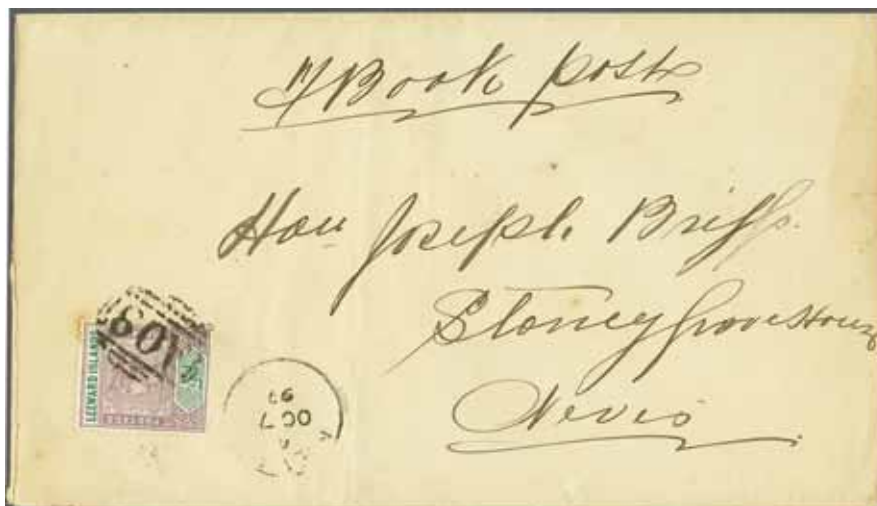 Book post
Hon Joseph Briggs.
Stoney Grove House
Nevis
LEEWARD ISLANDS
A09
OC 7
97